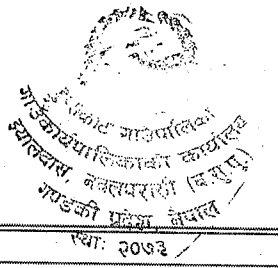 गाउँपालिका
गाउँकार्यपालिकाको कार्यालय
झ्यालदास, नवलपरासी (ब.सु.पू.)
गण्डकी प्रदेश, नेपाल
स्था: २०७३